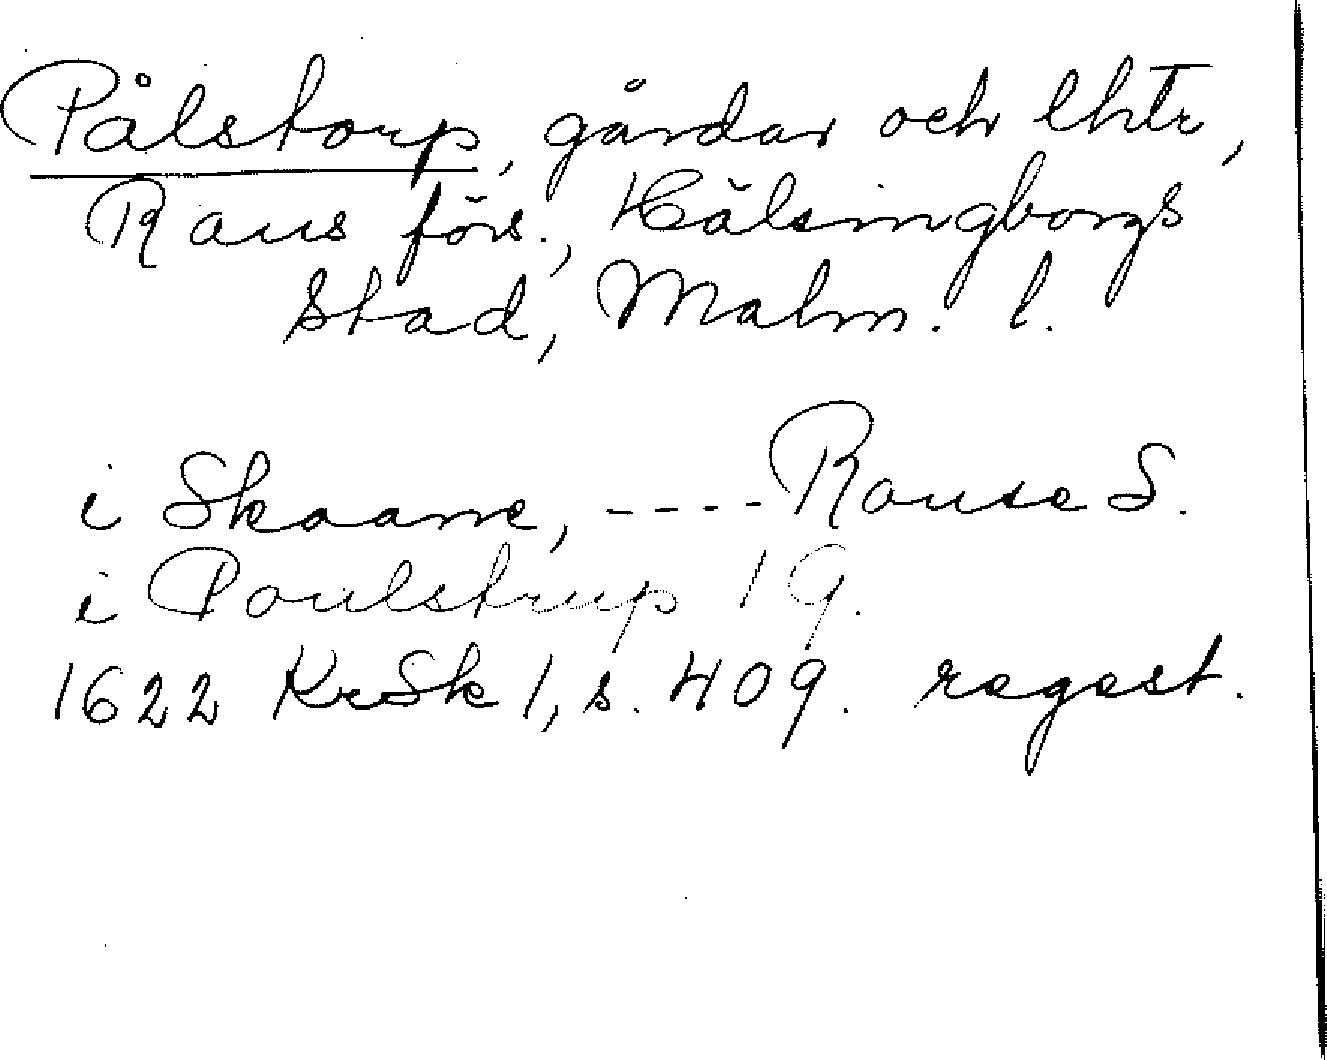 Pålstorp, gårdar och lhtr,
Raus förs., Hälsingborgs
stad, Malm. l.
i Skaane, ---- Rouse S.
i Poulstrup 1 G.
1622 KrSk 1, s. 409. regest.